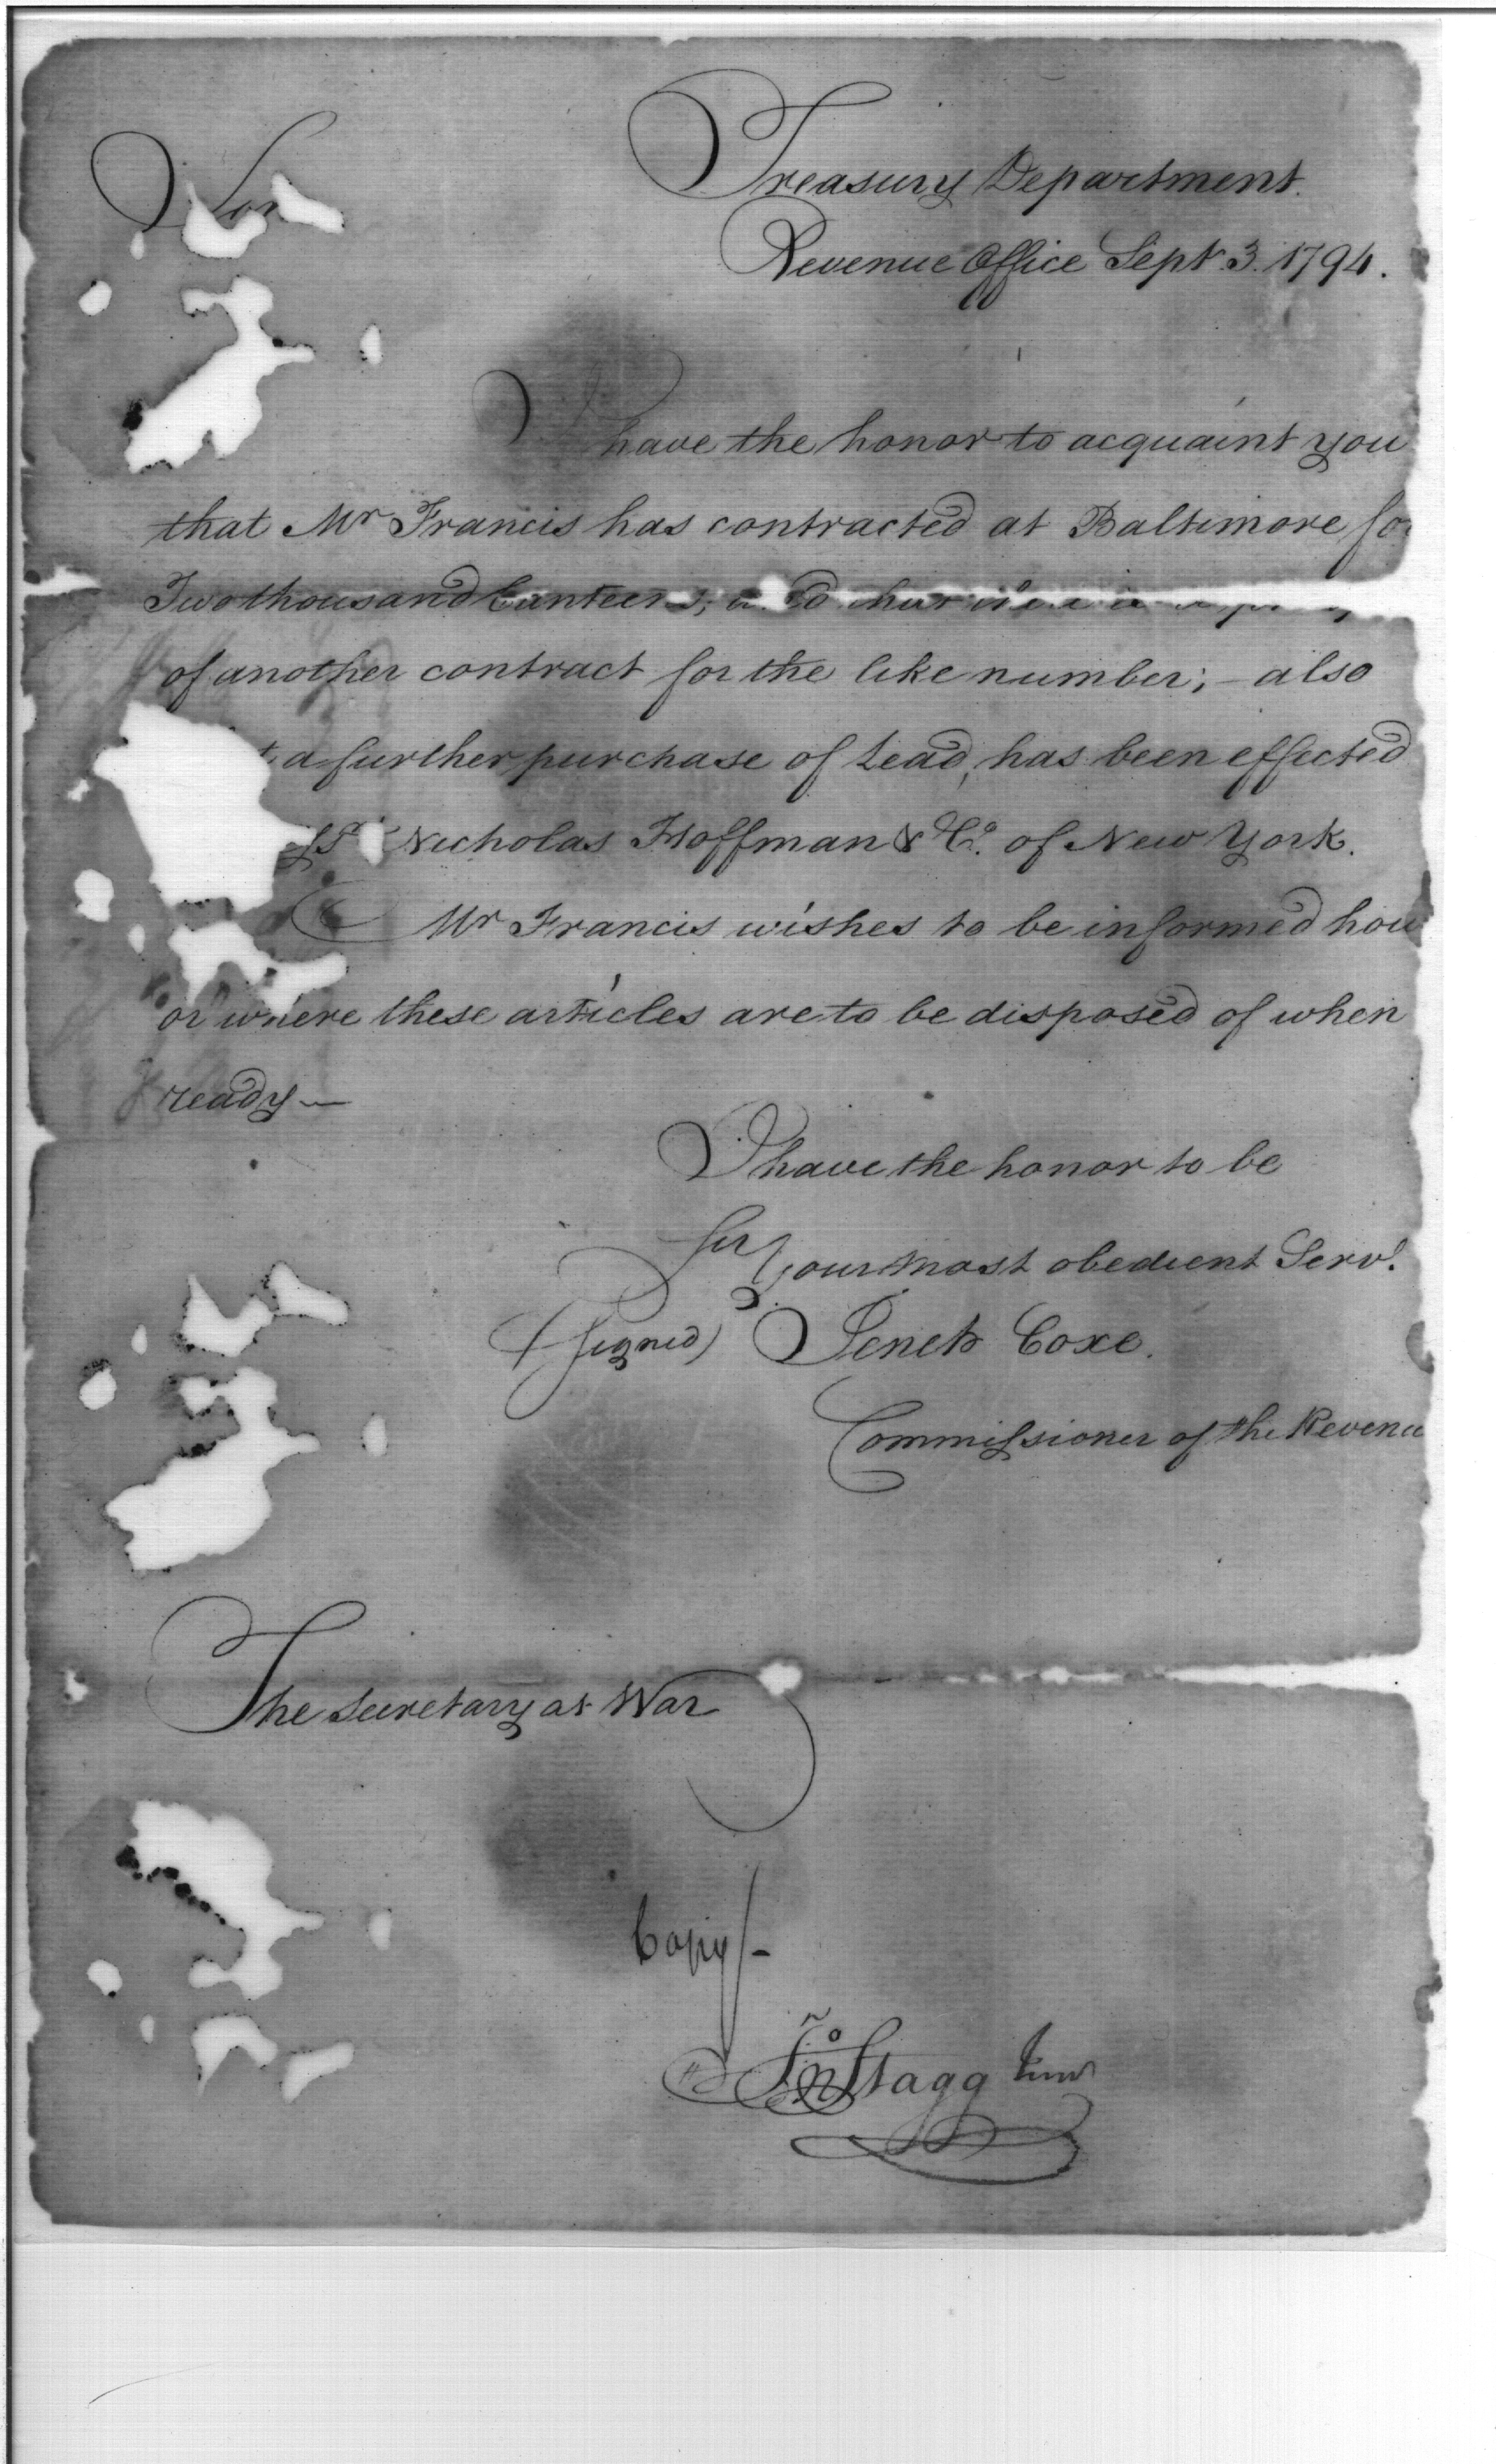 Treasury Department.
Revenue Office Sept. 3. 1794.
Sir
I have the honor to acquaint you
that Mr Francis has contracted at Baltimore for
Two thousand Canteens,
of another contract for the like number; – also
a further purchase of Lead, has been effected
Nicholas Hoffman & Co. of New York.
Mr Francis wishes to be informed how
or where these articles are to be disposed of when
ready —
I have the honor to be
Sir
Your most obedient Servt.
(signed) Tench Coxe.
Commissioner of the Revenue
The Secretary at War
Copy/-
Jno Stagg Junr